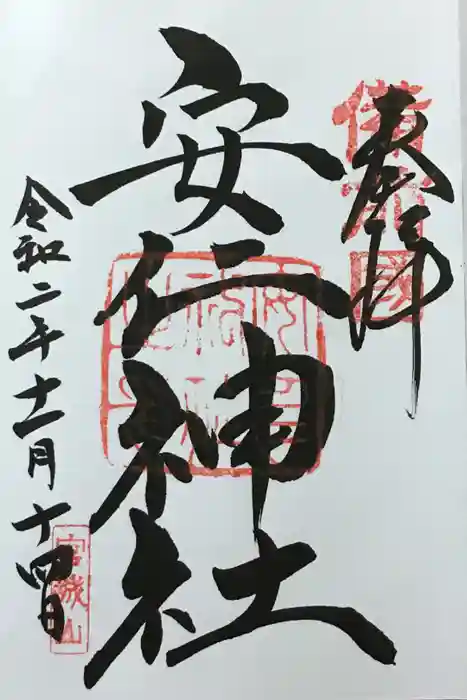 奉拝
備前國
安仁神社
令和二年十一月十四日
宮城山